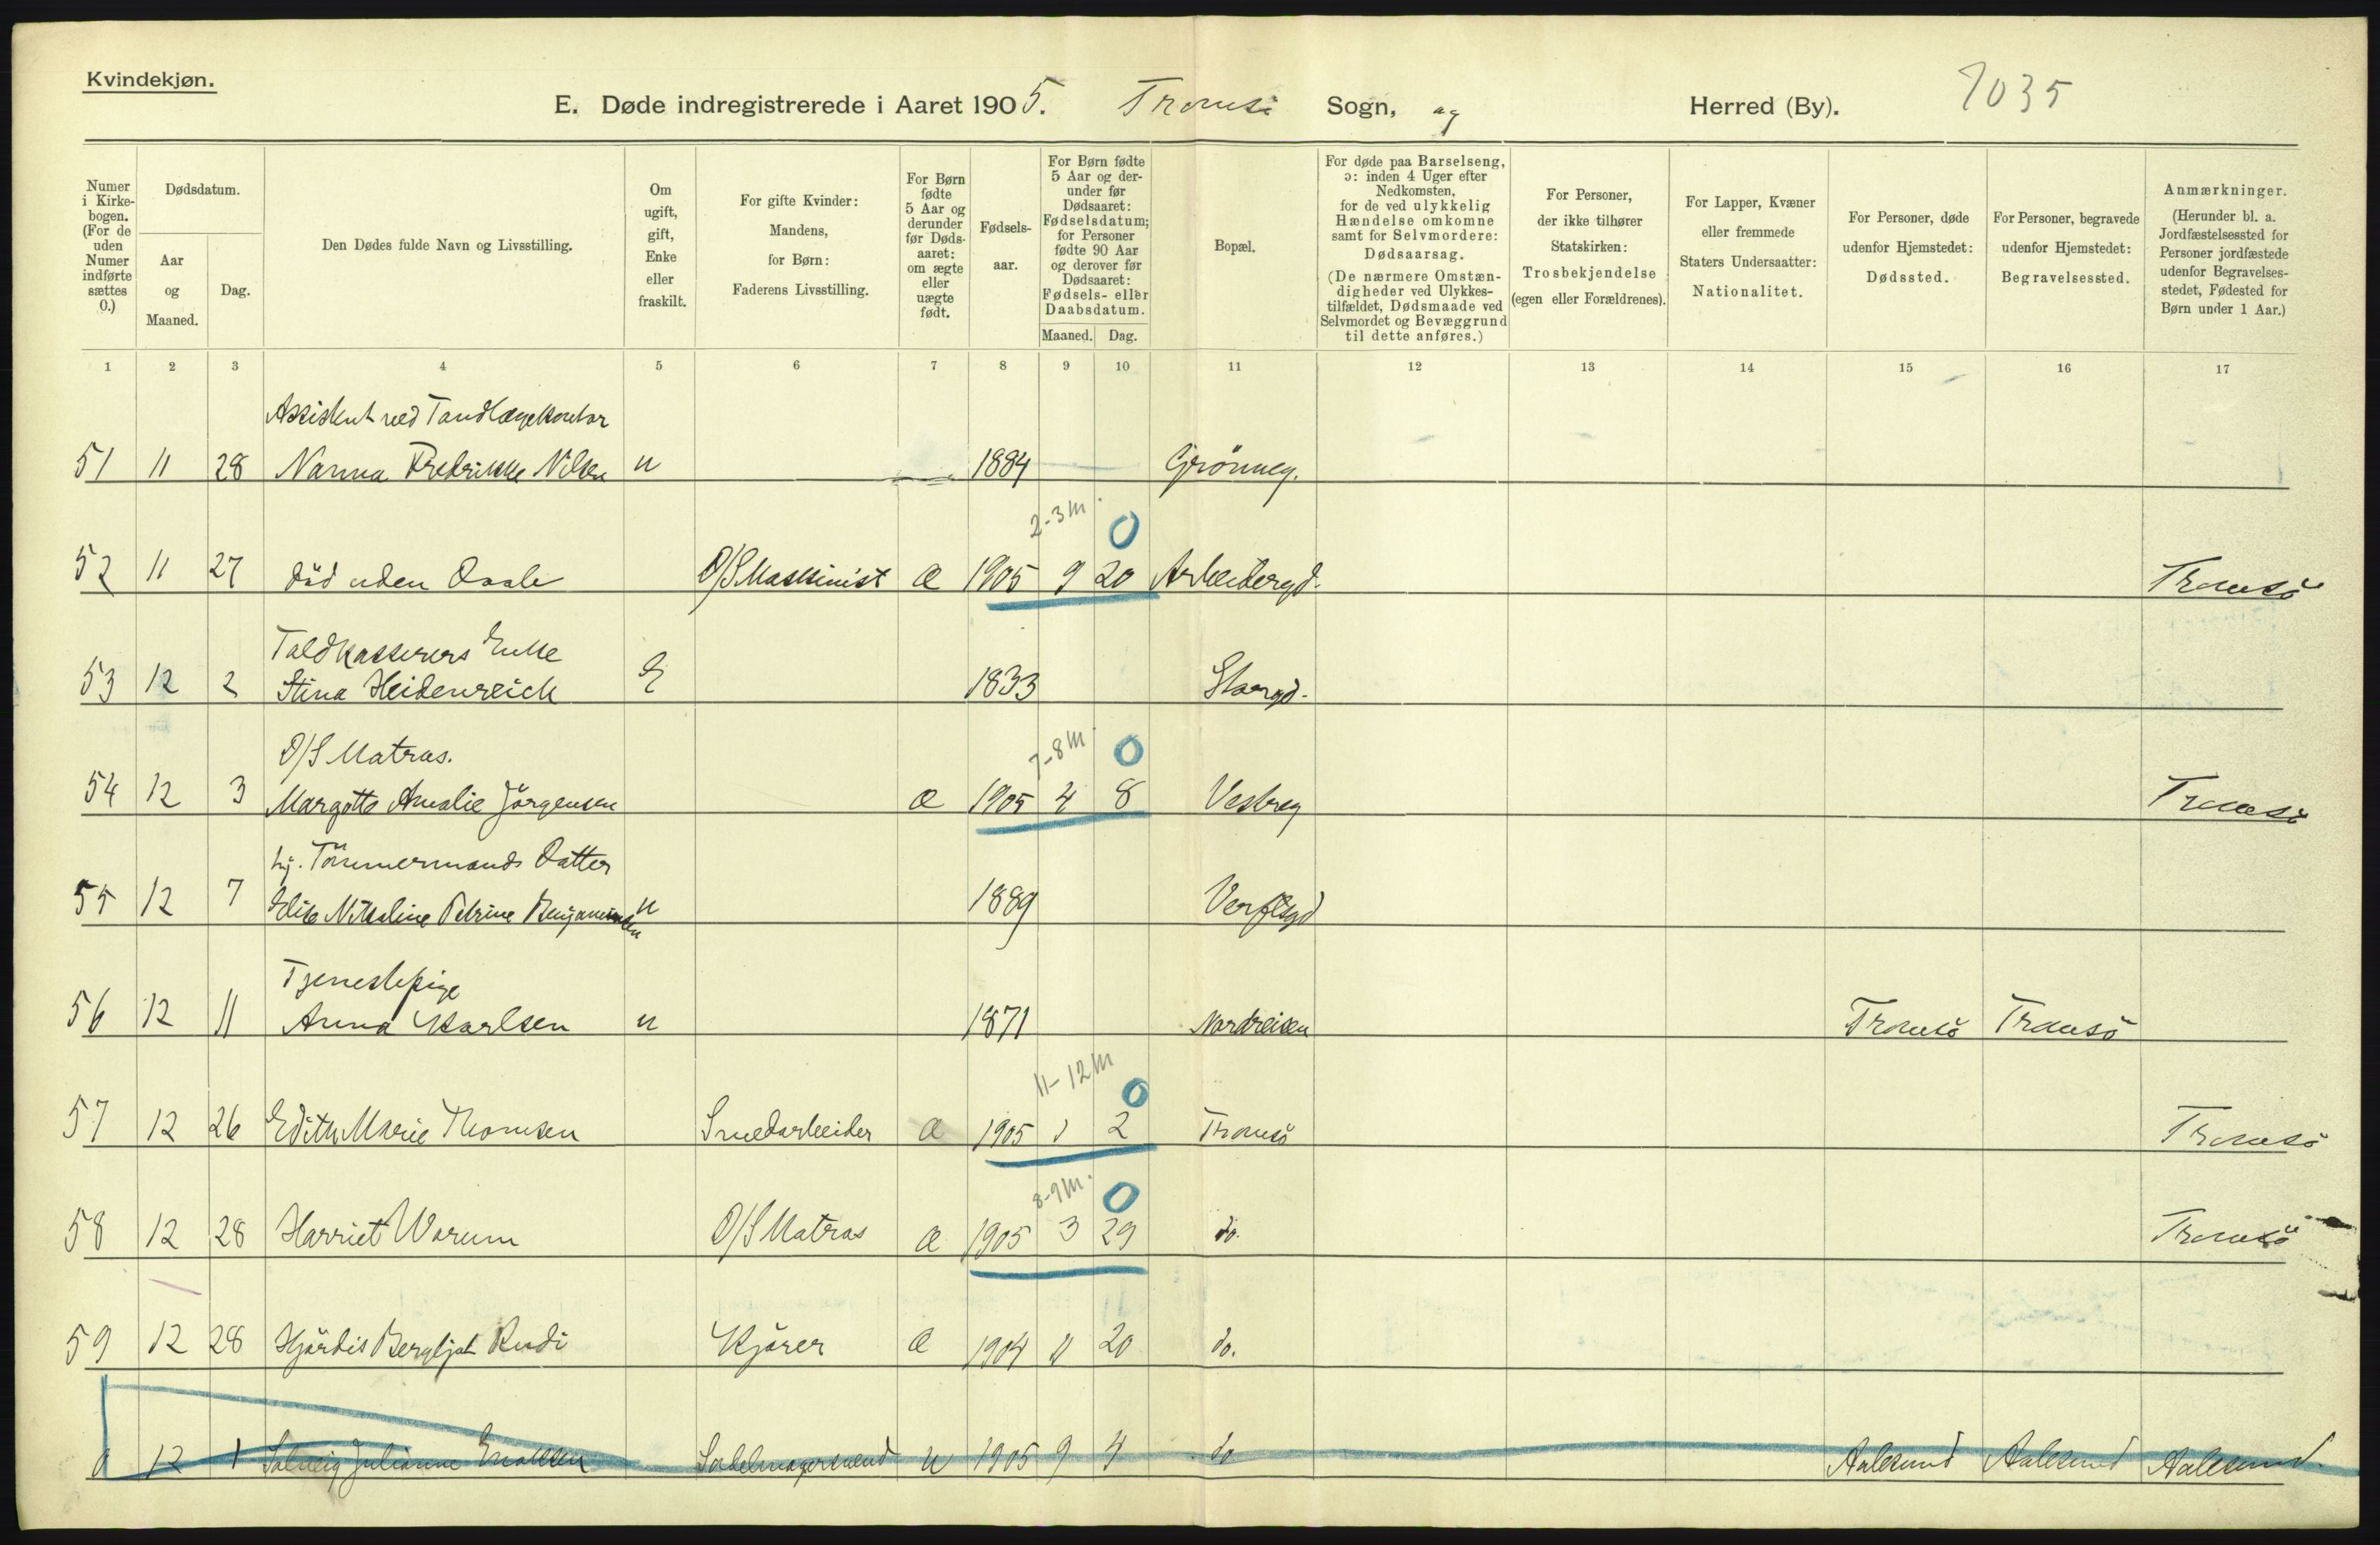 Kvindekjøn.
E. Døde indregistrerede i Aaret 1905. Tromsö Sogn, og Herred (By). 7035
Numer i Kirke-bogen. (For de uden Numer indførte sættes 0.)
Dødsdatum.
Aar og Maaned.
Dag.
Den Dødes fulde Navn og Livsstilling.
Om ugift, gift, Enke eller fraskilt.
For gifte Kvinder: Mandens, for Børn: Faderens Livsstilling.
For Børn fødte 5 Aar og derunder før Døds-aaret: om ægte eller uægte født.
Fødsels-aar.
For Børn fødte 5 Aar og der-under før Dødsaaret: Fødselsdatum; for Personer fødte 90 Aar og derover før Dødsaaret: Fødsels- eller Daabsdatum.
Maaned. Dag.
Bopæl.
For døde paa Barselseng, ɔ: inden 4 Uger efter Nedkomsten, for de ved ulykkelig Hændelse omkomne samt for Selvmordere: Dødsaarsag. (De nærmere Omstæn-digheder ved Ulykkes-tilfældet, Dødsmaade ved Selvmordet og Bevæggrund til dette anføres.)
For Personer, der ikke tilhører Statskirken: Trosbekjendelse (egen eller Forældrenes).
For Lapper, Kvæner eller fremmede Staters Undersaatter: Nationalitet.
For Personer, døde udenfor Hjemstedet: Dødssted.
For Personer, begravede udenfor Hjemstedet: Begravelsessted.
Anmærkninger. (Herunder bl. a. Jordfæstelsessted for Personer jordfæstede udenfor Begravelses-stedet, Fødested for Børn under 1 Aar.)
1 2 3 4 5 6 7 8 9 10 11 12 13 14 15 16 17
Assistent ved Tandlægekontor
51 11 28 Nanna Fredrikke Nilsen u 1884 Grönneg.
2-3 m. 0
52 11 27 död uden Daab D/S Maskinist Æ 1905 9 20 Arbeidergd. Tromsö
Toldkasserers Enke
53 12 2 Stina Heidenreich E 1833 Storgd.
D/S Matros. 7-8 m. 0
54 12 3 Margotte Amalie Jörgensen Æ 1905 4 8 Vestreg Tromsö
hj. Tömmermands Datter
55 12 7 Elise Nikoline Petrine Benjaminsen u 1889 Verftsgd
Tjenestepige
56 12 11 Anna Karlsen u 1871 Nordreisen Tromsö Tromsö
11-12 m 0
57 12 26 Edith Marie Thomsen Smedarbeider Æ 1905 1 2 Tromsö Tromsö
8-9 m. 0
58 12 28 Harriet Warum D/S Matros Æ 1905 3 29 do. Tromsö
59 12 28 Hjördis Bergljot Rudi Kjörer Æ 1904 11 20 do.
0 12 1 Solveig Julianne Enoksen Sadelmagersvend U 1905 9 4 do Aalesund Aalesund Aalesund.